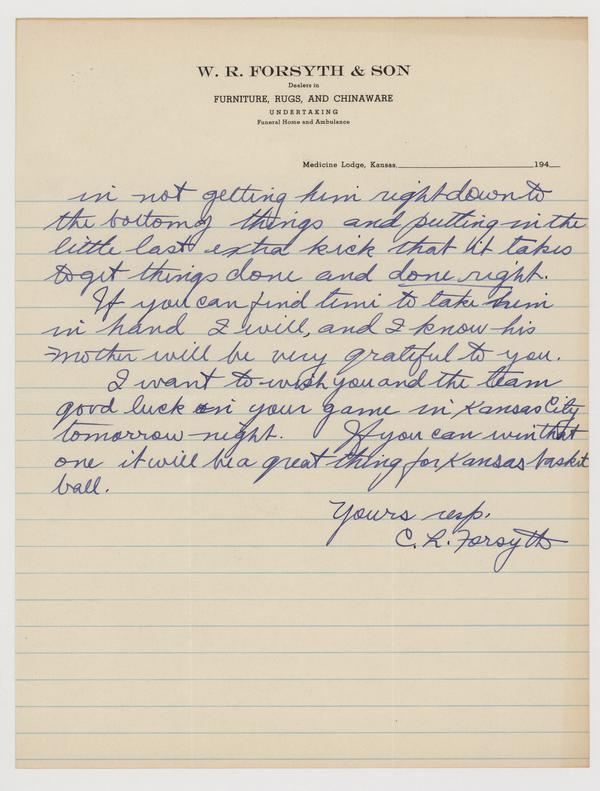 W. R. FORSYTH & SON
Dealers in
FURNITURE, RUGS, AND CHINAWARE
UNDERTAKING
Funeral Home and Ambulance
Medicine Lodge, Kansas, 194
in not getting him right down to
the bottom of things and putting in the
little last extra kick that it takes
to get things done and done right.
If you can find time to take him
in hand I will, and I know his
mother will be very grateful to you.
I want to wish you and the team
good luck in your game in Kansas City
tomorrow night. If you can win that
one it will be a great thing for Kansas basket
ball.
Yours resp.
C. L. Forsyth